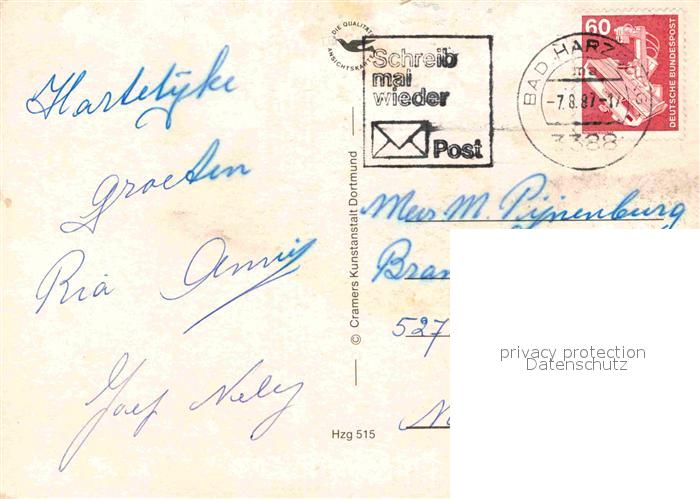 Hartelijke
Groeten
Ria Annie
Joef Nelly
DIE QUALITÄTS
ANSICHTSKARTE
© Cramers Kunstanstalt Dortmund
Hzg 515
Schreib
mal
wieder
Post
60
DEUTSCHE BUNDESPOST
BAD HARZ
-7.8.87-17
3388
Mevr M. Pijnenburg
Bran
527
N
privacy protection
Datenschutz